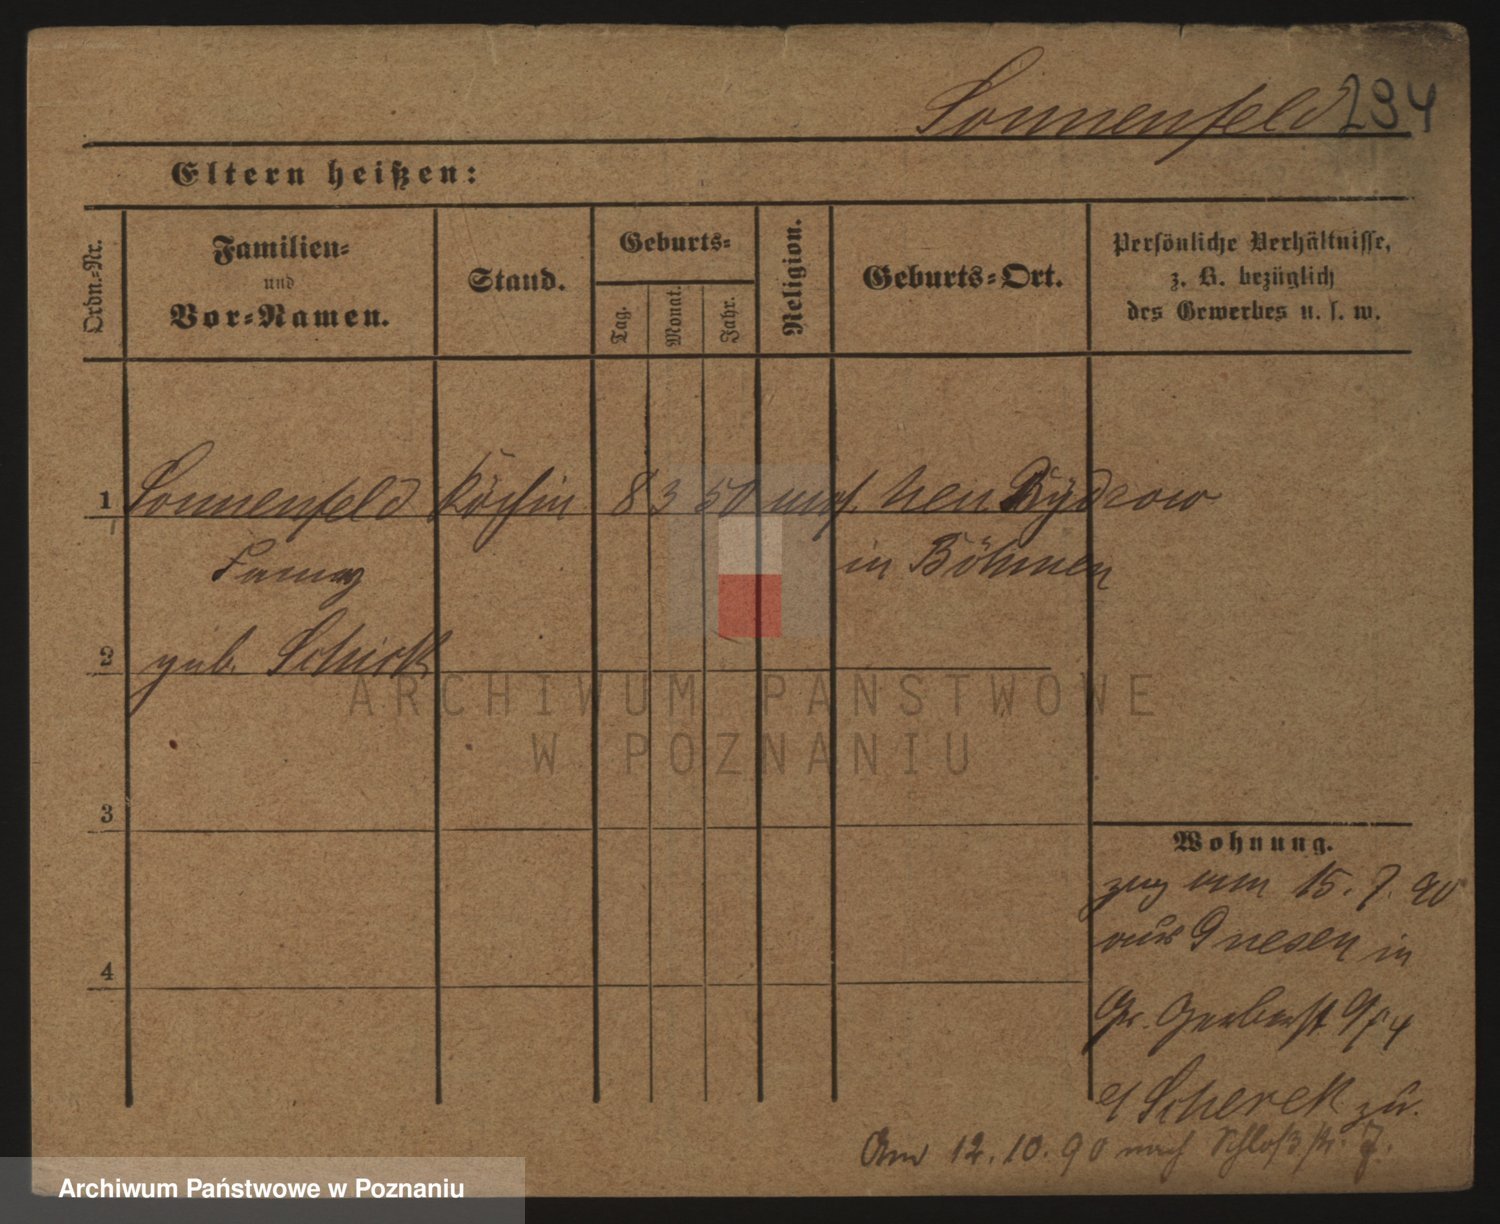 Sonnenfeld 294
Eltern heißen:
Ordn.-Nr.
Familien-
und
Vor-Namen.
Stand.
Geburts-
Tag.
Monat.
Jahr.
Religion.
Geburts-Ort.
Persönliche Verhältnisse,
z. B. bezüglich
des Gewerbes u. s. w.
1 Sonnenfeld Köchin 8 3 50 mos. Neu Bydzow
Fanny in Böhmen
2 geb. Schick
3
4
Wohnung.
zug am 15. 7. 90
aus Gnesen in
Gr. Gerberst 9/4
b/ Scherek zu.
Am 12. 10. 90 nach Schloßstr. 7.
ARCHIWUM PAŃSTWOWE
W POZNANIU
Archiwum Państwowe w Poznaniu